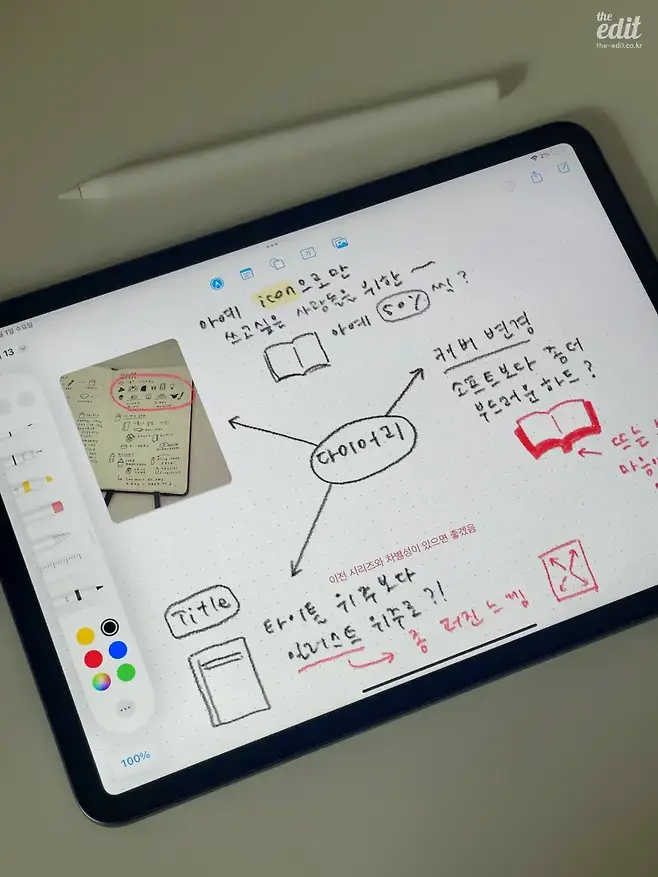 the
edit
the-edit.co.kr
1일 수요일
13
아예 icon으로만
쓰고싶은 사람들을 위한 ~
아예 씩?
커버 변경
소프트보다 좀더
부드러운 하드?
다이어리
뜨는
이전 시리즈와 차별성이 있으면 좋겠음
Title
타이틀 위주보다
일러스트 위주로?!
좀 러진 느낌
100%